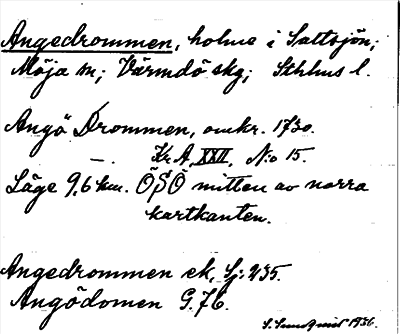 Angedrommen, holme i Saltsjön;
Möja sn; Värmdö skg; Sthlms l.
Angö Drommen, omkr. 1730.
— Kr. A. XXII, N:o 15.
Läge 9,6 km. ÖSÖ mitten av norra
kartkanten.
Angedrommen ek, Sj: 235.
Angödomen G. 76.
S. Sundqvist 1936.